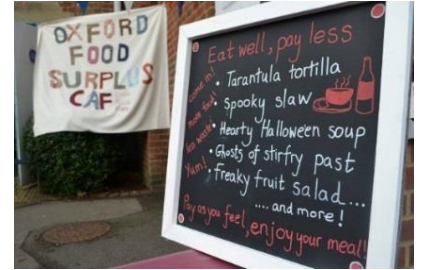 OXFORD
FOOD
SURPLUS
CAF
Eat well, pay less
come in!
more food!
less waste!
Yum!
• Tarantula tortilla
• Spooky slaw
• Hearty Halloween soup
• Ghosts of stirfry past
• Freaky fruit salad...
.... and more!
Pay as you feel, enjoy your meal!